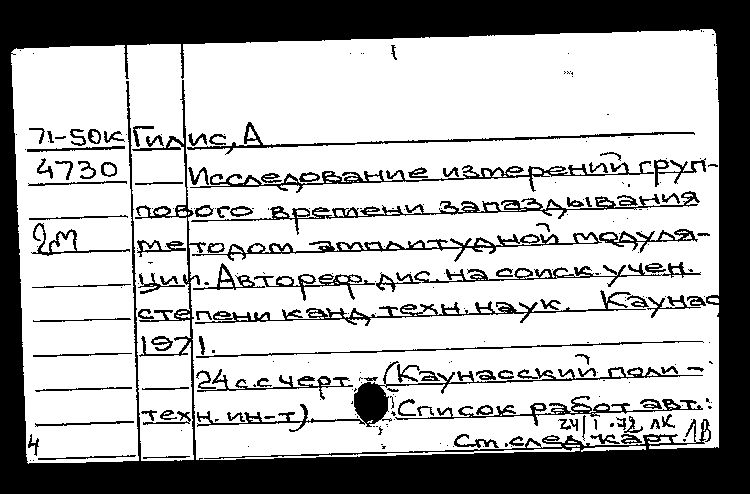 71-50к Гилис, А
4730 Исследование измерений груп-
пового времени запаздывания
2м методом амплитудной модуля-
ции. Автореф. дис. на соиск. учен.
степени канд. техн. наук. Каунас
1971.
24 с. с черт. - (Каунасский поли-
техн. ин-т). Список работ авт.:
24/I-72 ЛК
4 Ст. след. карт. 1В